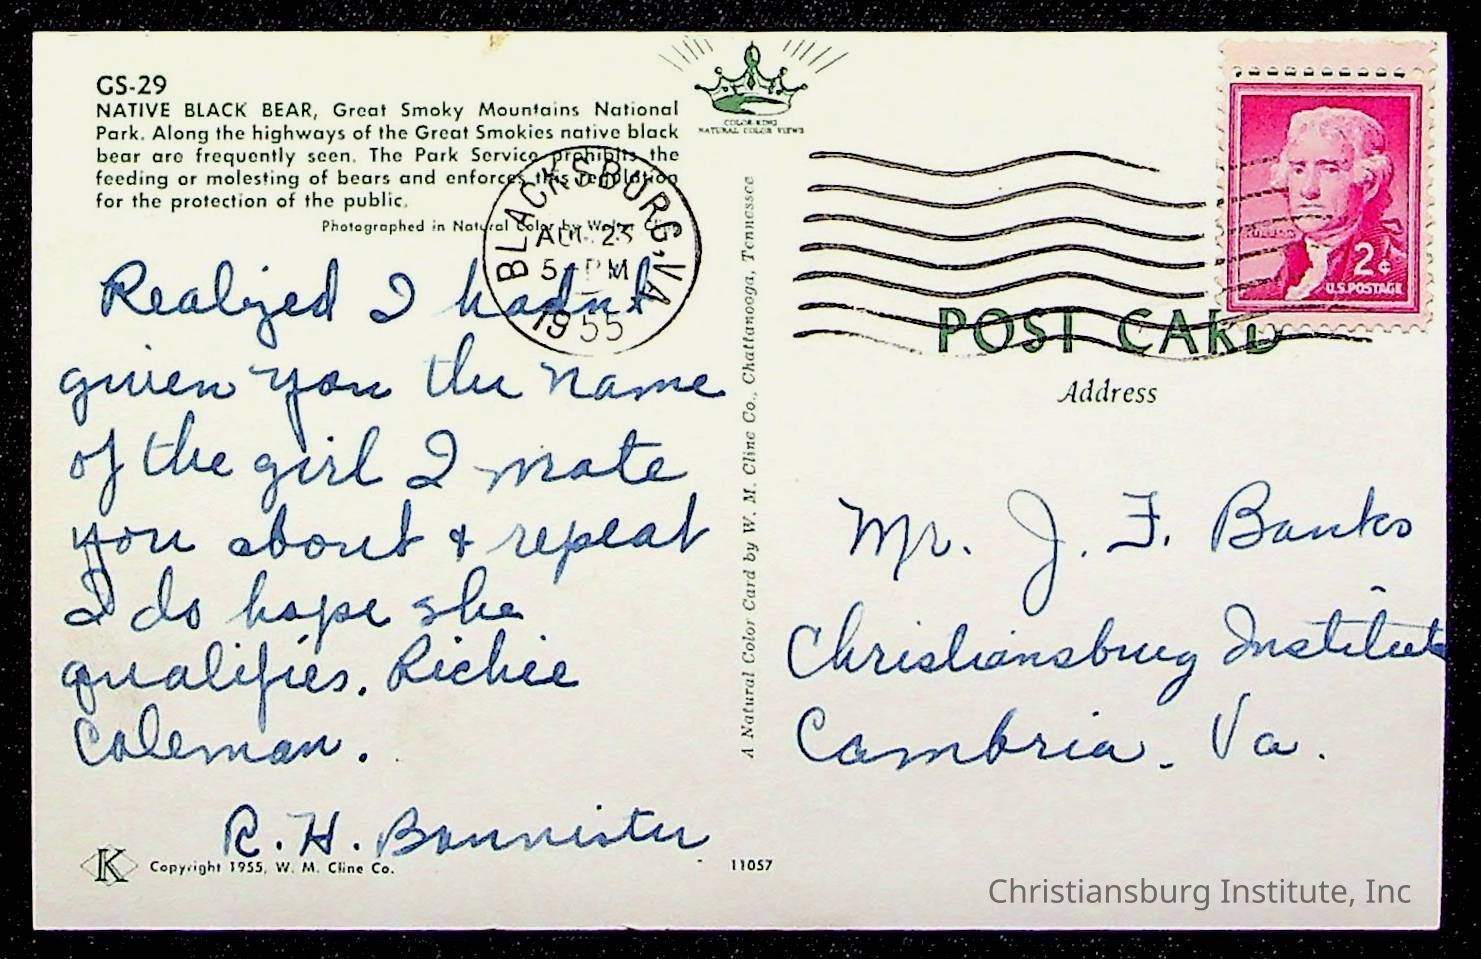 GS-29
NATIVE BLACK BEAR, Great Smoky Mountains National
Park. Along the highways of the Great Smokies native black
bear are frequently seen. The Park Service prohibits the
feeding or molesting of bears and enforces this regulation
for the protection of the public.
Photographed in Natural Color by Walter Cline
COLOR-KING
NATURAL COLOR VIEWS
BLACKSBURG, VA
AUG 23
5 PM
1955
2¢
U.S. POSTAGE
POST CARD
Address
Realized I hadnt
given you the name
of the girl I mote
you about & repeat
I do hope she
qualifies. Richie
Coleman.
R. H. Bannister
A Natural Color Card by W. M. Cline Co., Chattanooga, Tennessee
Mr. J. F. Banks
Christiansburg Institute
Cambria. Va.
K
Copyright 1955, W. M. Cline Co.
11057
Christiansburg Institute, Inc